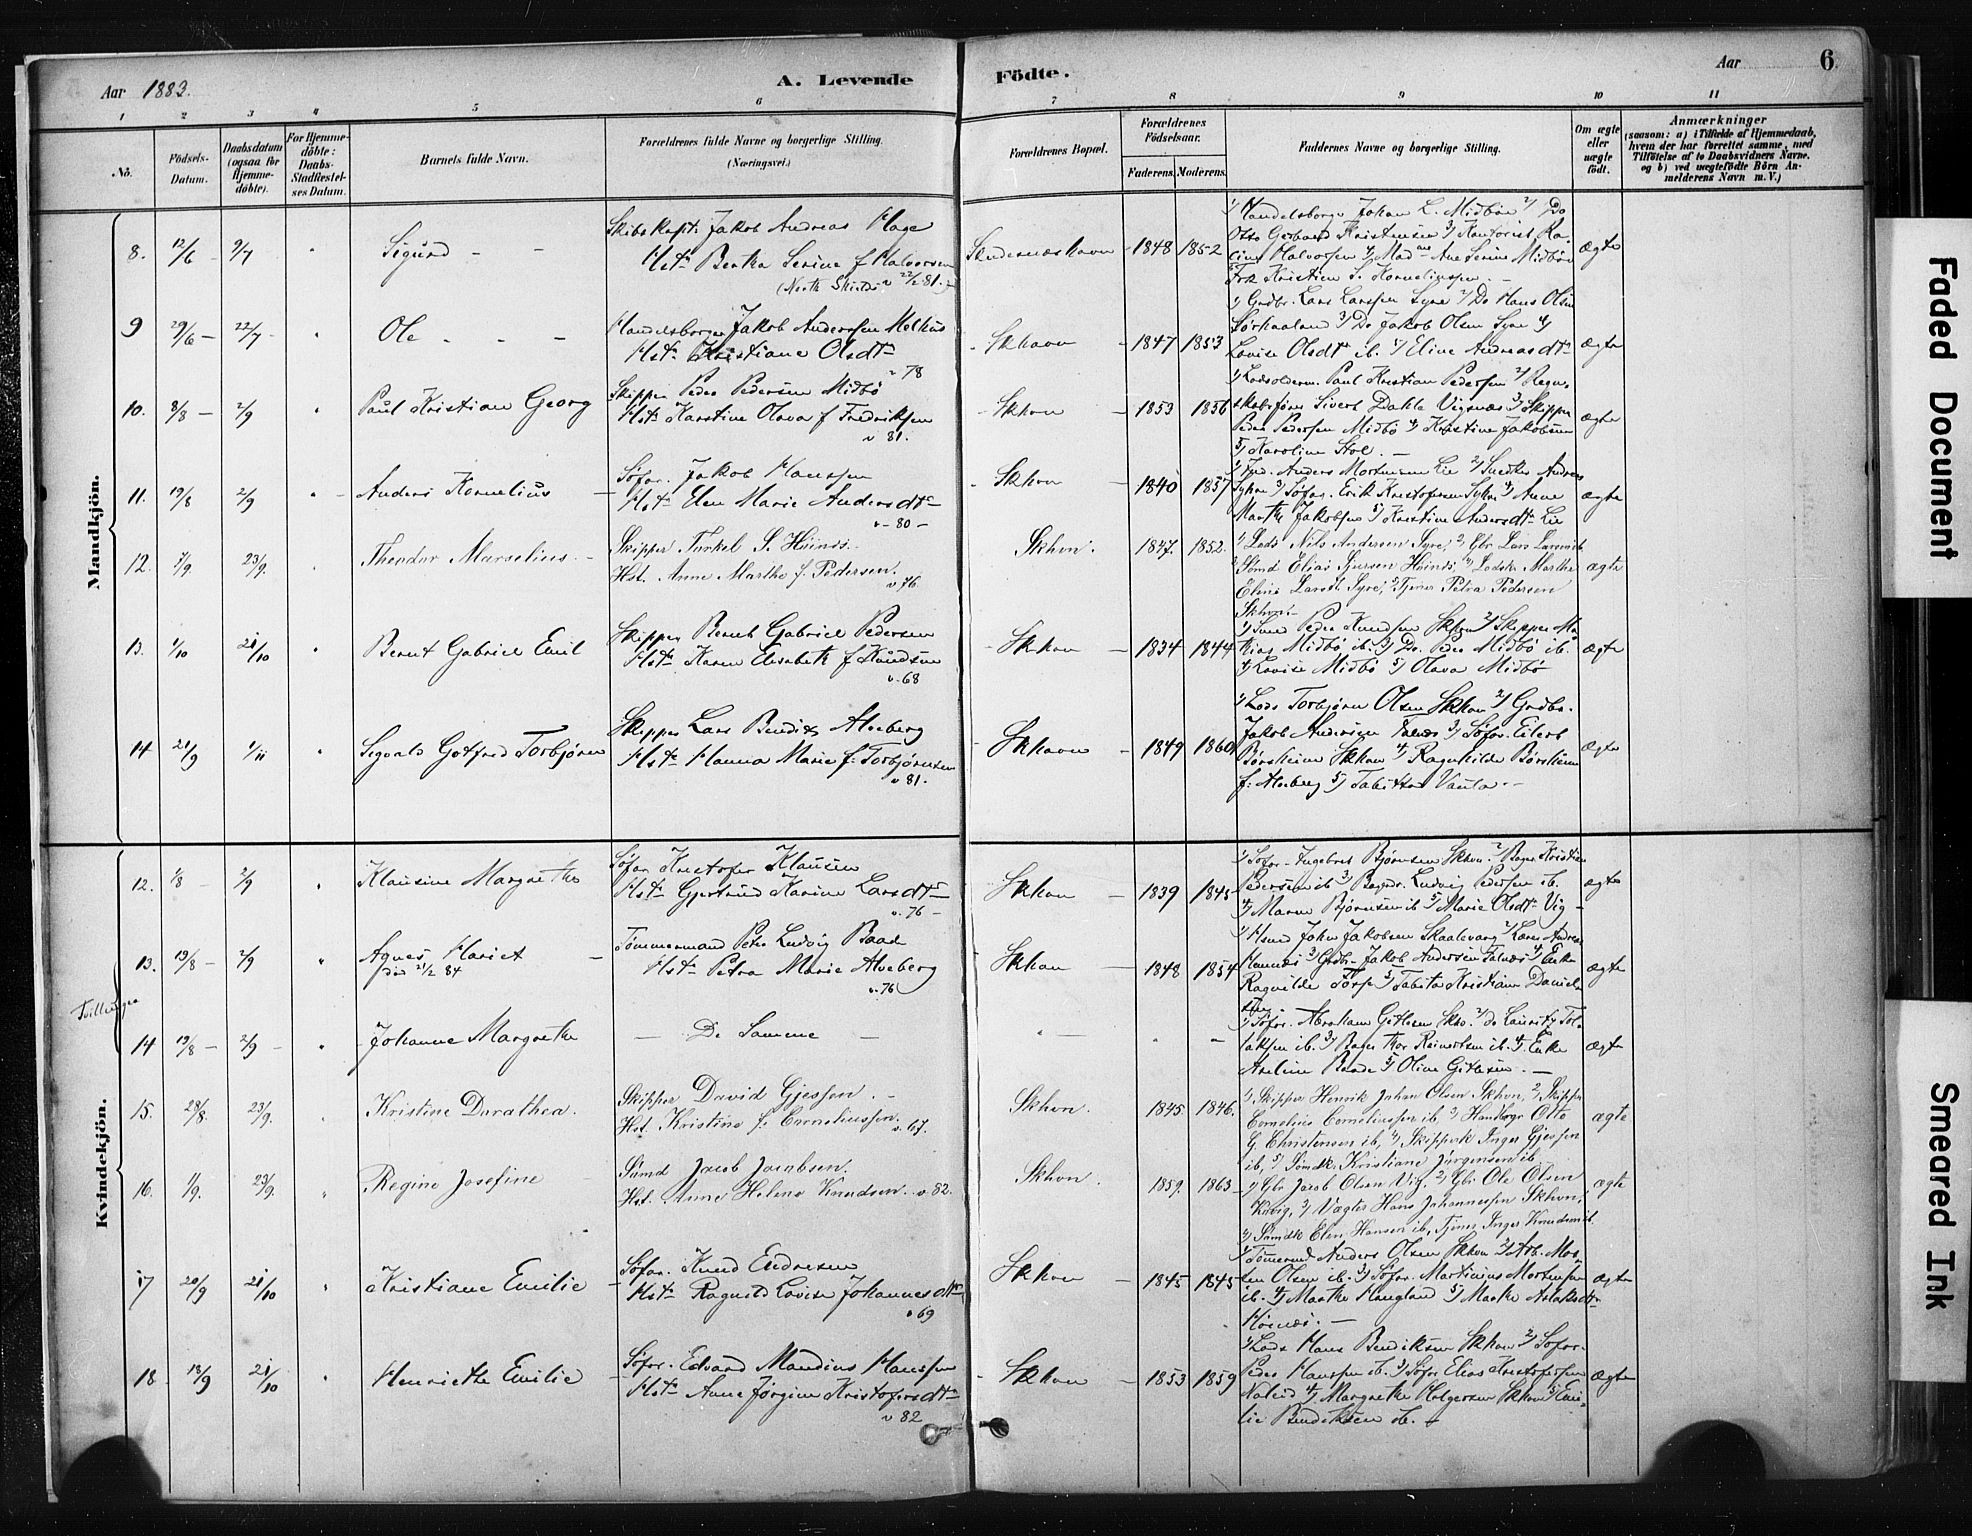 Aar 1883.
A. Levende
Födte.
Aar
6.
1 2 3 4 5 6 7 8 9 10 11
No.
Födsels-
Datum.
Daabsdatum
(ogsaa for
Hjemme-
döbte).
For Hjemme-
döbte:
Daabs-
Stadfæstel-
ses Datum.
Barnets fulde Navn.
Forældrenes fulde Navne og borgerlige Stilling.
(Næringsvei.)
Forældrenes Bopæl.
Forældrenes
Födselsaar.
Faderens. Moderens.
Faddernes Navne og borgerlige Stilling.
Om ægte
eller
uægte
födt.
Anmærkninger
(saasom: a) i Tilfælde af Hjemmedaab,
hvem der har forrettet samme, med
Tilföielse af to Daabsvidners Navne.
og b) ved uægtefödte Börn An-
melderens Navn m. V.)
Mandkjön.
8. 12/6 9/7 " Sigurd
Skibskapt. Jakob Andreas Hage
Hst. Bertha Serine f Halvorsen
(North Shields v 22/2 81.)
Skudesneshavn 1848 1852
1) Handelsborger Johan L. Midbøe 2) Do
Otto Gerhard Kristensen 3) Ra-
Halvorsen 4) Mad Ane Serine Midbøe
Frk Kristine S. Korneliussen
ægte
9 29/6 22/7 " Ole
Handelsborger Jakob Anderssen Melhus
Hst. Kristiane Olsdtr
v 78
Skhavn 1847 1853
1) Grdbr. Lars Larssen Syre 2) Do Hans Olsen
Sørhaaland 3) Do Jakob Olsen Syre 4)
Lovise Olsdtr ib. 5) Eline Andreasdtr
ægte
10. 8/8 2/9 " Paul Kristian Georg
Skipper Peder Pedersen Midbö
Hst. Karstine Olava f Fredriksen
v 81.
Skhvn 1853 1856
1) Lodsolderm. Paul Kristian Pedersen 2) Regn-
skabsfører Sivert Dahle Vigsnæs 3) Skipper
Peder Pedersen Midbö 4) Kristine Jakobsen
5) Karoline Stol.
ægte
11. 19/8 2/9 " Anders Kornelius
Søfar. Jakob Hanssen
Hst. Elen Marie Andersdtr
v. 80
Skhvn 1840 1837
1) Anders Mortensen Lie 2) Snedker Andreas
3) Søfar. Erik Kristofersen 4) Anne
Marthe Jakobsen 5) Kristine Andersdtr Lie
ægte
12. 7/9. 23/9. Theodor Marselius.
Skipper Torkel S. Hüinds.
Hst. Anne Marthe f. Pedersen.
v 76.
Skhvn. 1847. 1852.
1) Lods Nils Andersen Syre, 2) Gbr. Lars Larsen ib
3) Sømd Elias Sjursen 4) Lodsk. Marthe
Eline Larsdt. Syre, 5) Tjener Petra Pedersen
Skhvn.
ægte
13. 1/10 21/10 " Bernt Gabriel Emil
Skipper Bernt Gabriel Pedersen
Hst. Karen Elisabeth f Knudsen
v. 68
Skhavn 1834 1844
1) Smed Peder Knudsen Skhavn 2) Skipper Ma-
thias Midbö ib. 3) Do. Peder Midbö ib.
4) Lovise Midbö 5) Olava Midbö
ægte
14 21/9 1/11 " Sigvald Gotfred Torbjørn
Skipper Lars Bendix Alveberg
Hst. Hanna Marie f. Torbjørnsen
v 81.
Skhavn 1849 1860
1) Lods Torbjørn Olsen Skhavn 2) Grdbr.
Jakob Andersen Falnæs 3) Søfar. Eilert
Børsheim Skhavn 4) Ragnhilde Børsheim
f. Alveberg 5) Tabitta
ægte
Kvindekjön.
12. 1/8 2/9 " Klausine Margrethe
Søfar. Kristofer Klausen
Hst. Gjertrud Karine Larsdtr
v. 76
Skhvn 1839 1845
1) Søfar. Ingebret Bjørnsen Skhvn. 2) Bager Kristian
Pedersen ib 3) Ludvig Pedersen ib.
4) Maren Bjørnsen ib 5) Marie Olsdtr Vig
ægte
Tvillinger
13. 19/8 2/9 " Agnes Hariet
død 21/2 84
Tømmermand Peter Ludvig Baade
Hst. Petra Marie Alveberg
v. 76
Skhavn 1848 1854
1) Hsmd John Jakobsen Skaalevang 2) Lærer Andreas
3) Grdbr. Jakob Andersen Falnæs 4) Enke
Ragnilde 5) Tabita Kristiane Daniel-
sen.
ægte
14 19/8 2/9 " Johanne Margrethe
De Samme
1) Søfar. Abraham Gitlesen Skhv. 2) do Lauritz Tol-
laksen ib. 3) Bager Thor Reinertsen ib. 4) Enke
Aseline Baade 5) Olive Gitlesen.
ægte
15. 28/8. 23/9. " Kristine Dorathea.
Skipper David Gjessen.
Hst. Kristine f. Corneliussen.
v. 67.
Skhvn. 1845. 1846.
1) Skipper Henrik Johan Olsen Skhvn, 2) Skipper
Cornelius Corneliussen ib, 3) Handbgr Otto
G Christensen ib, 4) Skipperk Inger Gjessen
ib, 5) Sømdk. Kristiane Jørgensen ib
ægte
16. 1/9. 23/9. " Regine Josefine
Sømd Jacob Jacobsen.
Hst. Anne Helene Knudsen. v. 82.
Skhvn. 1859. 1863
1) Gbr Jacob Olsen Vig, 2) Gbr Ole Olsen
Kirvig, 3) Vægter Hans Johannessen Skhvn,
4) Sømdk Elen Hansen ib, Tjener Inger Knudsen ib.
ægte
17 20/9 21/10 " Kristiane Emilie
Søfar. Knud Endresen
Hst. Ragnild Lovise Johannesdtr
v 69
Skhvn 1845 1845
1) Tømmermd Anders Olsen Skhvn 2) Arb. Mor-
ten Olsen ib. 3) Søfar. Martinius Mortensen
ib. 4) Marthe Haugland 5) Marthe Aslaksdtr
ægte
18 18/9 21/10 " Henriette Emilie
Søfar. Edvard Mandius Hanssen
Hst. Anne Jørgine Kristofersdtr
v 82
Skhavn 1853 1859
1) Lods Hans Bendiksen Skhavn 2) Søfar.
Peder Hanssen ib. 3) Søfar Elias Kristofersen
4) Margrethe Holgersen Skhavn 5) Emi-
lie Bendiksen ib.
ægte
Faded Document
Smeared Ink